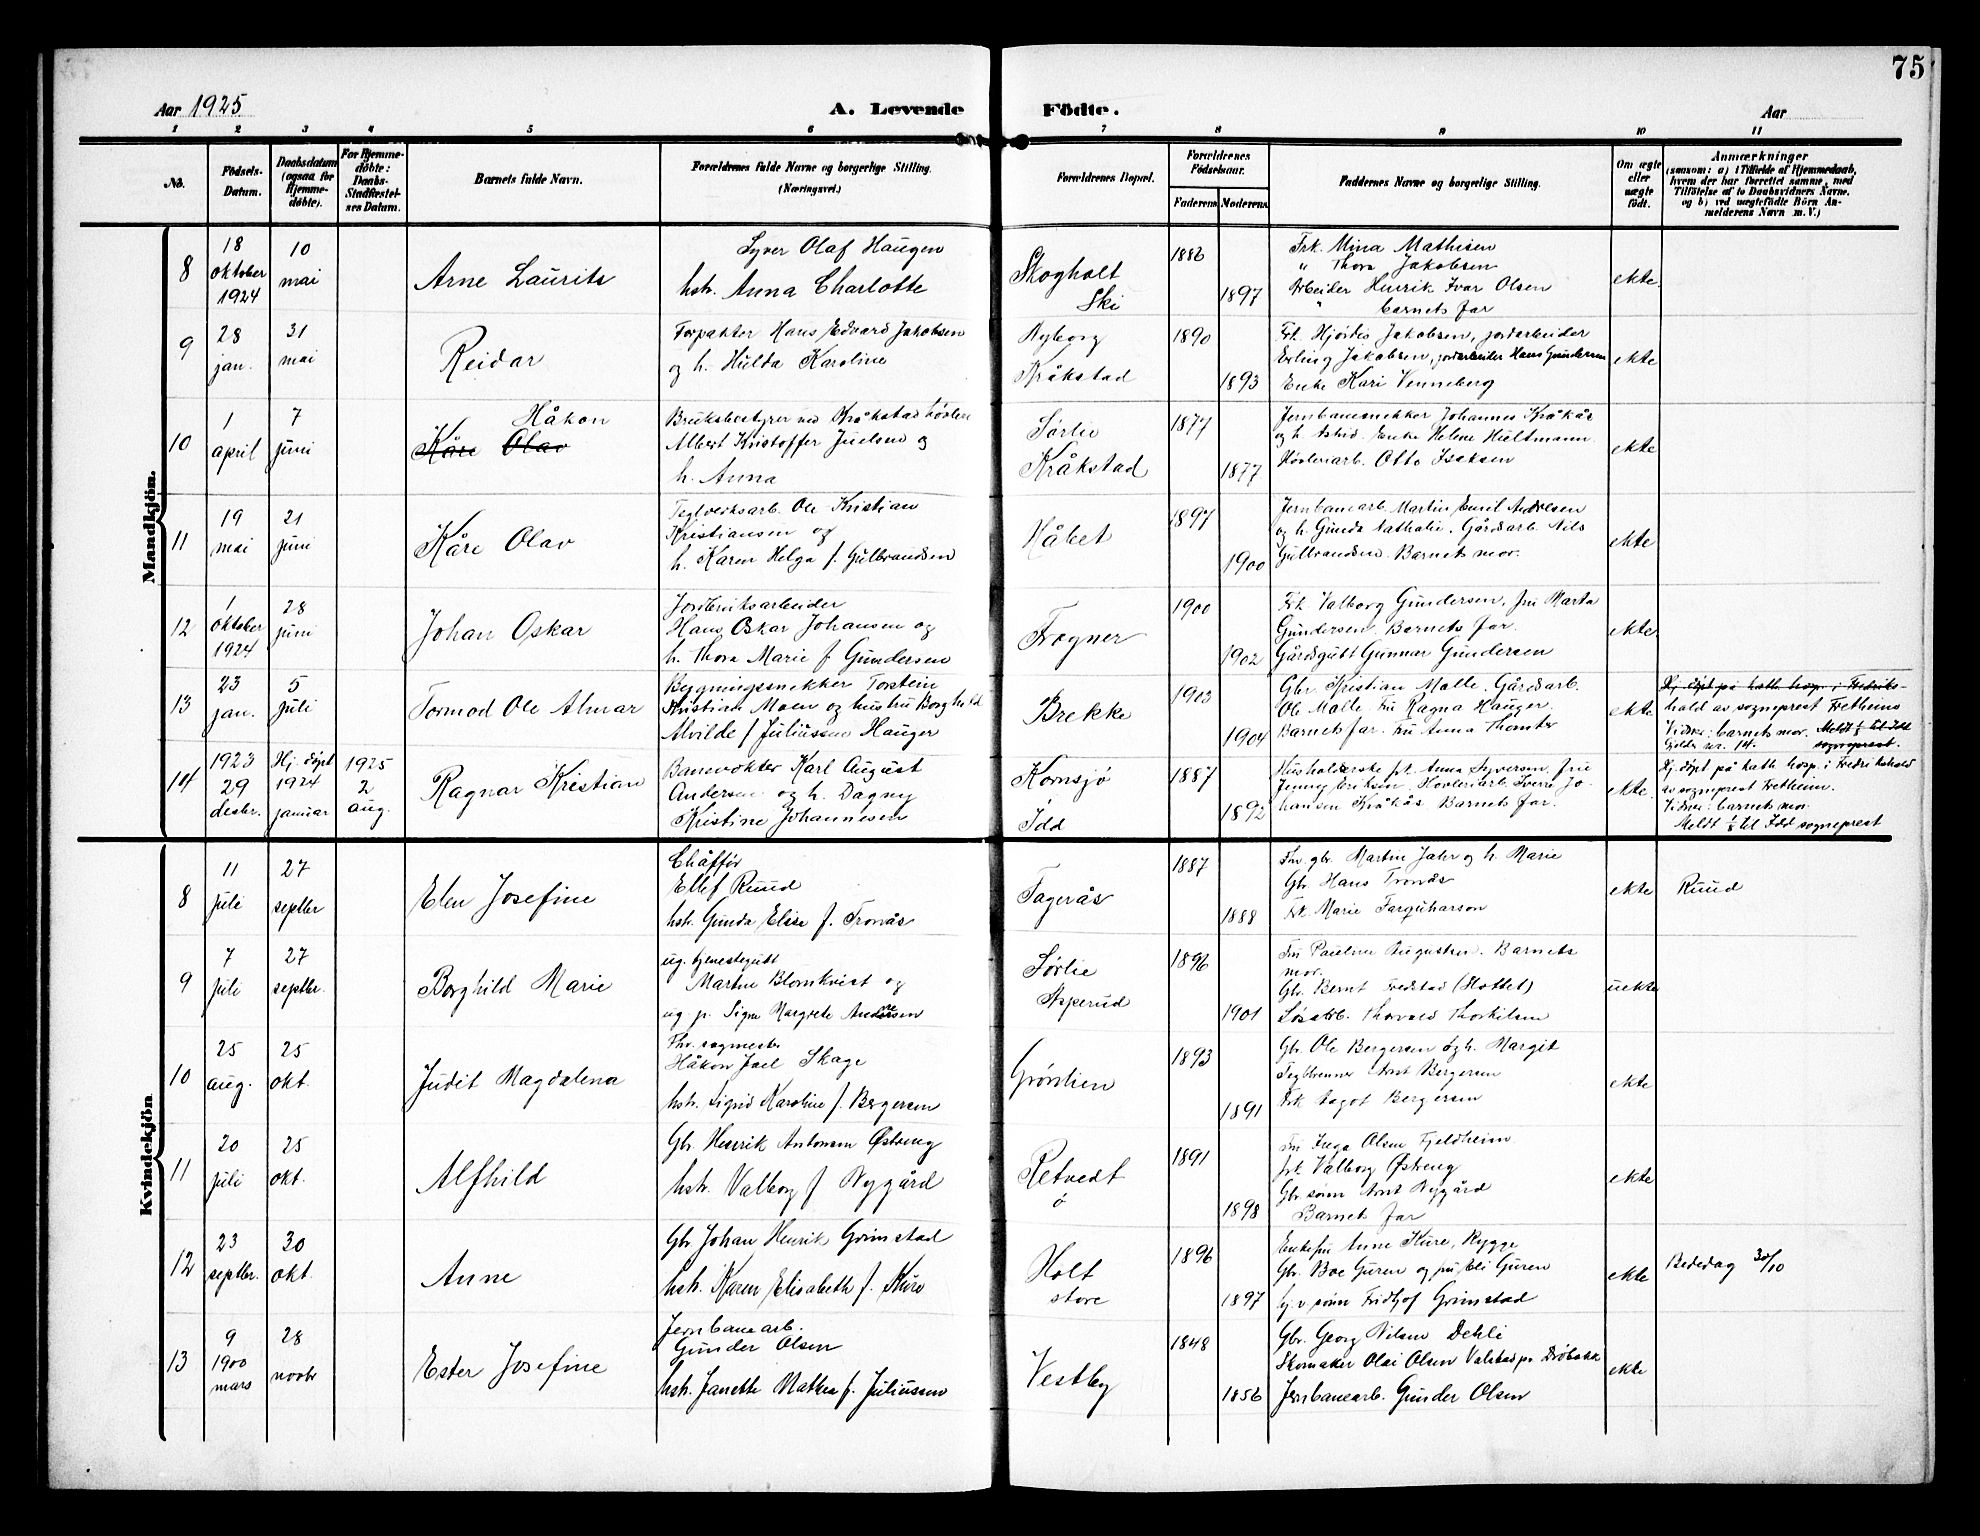 75
Aar 1925
A. Levende Födte.
Aar
1 2 3 4 5 6 7 8 9 10 11
No.
Födsels-
Datum.
Daabsdatum
(ogsaa for
Hjemme-
döbte).
For Hjemme-
döbte:
Daabs-
Stadfæstel-
ses Datum.
Barnets fulde Navn.
Forældrenes fulde Navne og borgerlige Stilling.
(Næringsvei.)
Forældrenes Bopæl.
Forældrenes
Födselsaar.
Faderens Moderens
Faddernes Navne og borgerlige Stilling.
Om ægte
eller
uægte
födt.
Anmærkninger
(saasom: a) i Tilfælde af Hjemmedaab,
hvem der har forrettet samme, med
Tilföielse af to Daabsvidners Navne,
og b) ved uægtefödte Börn An-
melderens Navn m. V.)
Mandkjön.
8
18
oktober
1924
10
mai
Arne Laurits
Syver Olaf Haugen
hstr. Anna Charlotte
Skogholt
Ski
1886
1897
Frk. Mina Mathisen
" Thora Jakobsen
Arbeider Henrik Ivar Olsen
" barnets far
ekte
9
28
jan.
31
mai
Reidar
Forpakter Hans Edvard Jakobsen
og h. Hulda Karoline
Nyborg
Kråkstad
1890
1893
Frk. Hjørdis Jakobsen, jordarbeider
Erling Jakobsen, jordarbeider Hans Gundersen
Enke Kari Venneberg
ekte
10
1
april
7
juni
Håkon
Kåre Olav
Bruksbestyrer ved Kråkstad
Albert Kristoffer Juelsen og
h. Anna
Sørlie
Kråkstad
1877
1877
Jernbanesnekker Johannes Kråkås
og h. Astrid. Enke Helene Hultmann
Høvleriarb. Otto Isaksen
ekte
11
19
mai
21
juni
Kåre Olav
Teglverksarb. Ole Kristian
Kristiansen og
h. Karen Helga f. Gulbrandsen
Håbet
1897
1900
Jernbanearb. Martin Emil Andresen
og h. Gunda Nathalie. Gårdsarb. Nils
Gulbrandsen. Barnets mor.
ekte
12
1
oktober
1924
28
juni
Johan Oskar
Jordbruksarbeider
Hans Oskar Johansen og
h. Thora Marie f. Gundersen
Frogner
1900
1902
Frk. Valborg Gundersen, fru Marta
Gundersen. Barnets far.
Gårdsgutt Gunnar Gundersen
ekte
13
23
jan.
5
juli
Tormod Ole Almar
Bygningssnekker Torstein
Kristian Moen og hustru Borghild
Alvilde f. Juliussen Hauger
Brekke
1903
1904
Gbr. Kristian Malle. Gårdsarb.
Ole Malle fru Ragna Hauger.
Barnets far. Fru Anna Thomter
ekte
Hj. døpt på kath. hosp. i Fredriks-
hald av sogneprest Fretheim
Vidner: barnets mor. Meldt 1/8 til Idd
Gjelder nr. 14. sogneprest.
14
1923
29
desbr.
Hj. døpt
1924
januar
1925
2
aug.
Ragnar Kristian
Banevokter Karl August
Andersen og h. Dagny
Kristine Johannesen
Kornsjø
Idd
1887
1892
Husholderske fr. Anna Syversen, fru
Jenny Eriksen Høvleriarb. Sverre Jo-
hansen Kråkås Barnets far.
ekte
Hj. døpt på kath. hosp. i Fredrikshald
av sogneprest Fretheim.
Vidner: barnets mor.
Meldt 1/8 til Idd sogneprest
Kvindekjön
8
11
juli
27
septbr
Elen Josefine
Chåffør
Ellef Ruud
hstr. Gunda Elise f. Tronås
Fagerås
1887
1888
Fhv. gbr. Martin Jahr og h. Marie
Gbr Hans Tronås
Frk. Marie Farquharson
ekte
Ruud
9
7
juli
27
septbr.
Borghild Marie
ug. tjenestegutt
Martin Blomkvist og
ug. p. Signe Margrete Andersen
Sørlie
Asperud
1896
1901
Fru Pauline Augustsen. Barnets
mor.
Gbr. Bernt Fredstad (Hottet)
Løsarb. Thorvald Thorkilsen
uekte
10
25
aug.
25
okt.
Judit Magdalena
Håkon Joel Skage
hstr. Sigrid Karoline f. Bergersen
Grønlien
1893
1891
Gbr. Ole Bergersen og h. Margit
Teglbrenner Arnt Bergersen
Frk Aagot Bergersen
ekte
11
20
juli
25
okt.
Alfhild
Gbr. Henrik Antonsen Østreng
hstr. Valborg f. Nygård
Retvedt
ø
1891
1898
Fru Inga Olsen Fjeldheim
frk. Valborg Østreng
Gbr sønn Arnt Nygård
Barnets far
ekte
12
23
septbr.
30
okt.
Anne
Gbr Johan Henrik Grimstad
hstr. Karen Elisabeth f. Kure
Holt
store
1896
1897
Enkefru Anne Kure, Rygge
Gbr. Boe Guren og fru Eli Guren
Gbr. sønn Fridtjof Grimstad
ekte
Bededag 30/10
13
9
1900
mars
28
novbr
Ester Josefine
Jernbanearb.
Gunder Olsen
hstr. Janette Mathea f. Juliussen
Vestby
1848
1856
Gbr. Georg Nilsen Dehli
Skomaker Olai Olsen Valstad pr. Drøbakk
Jernbanearb. Gunder Olsen
ekte